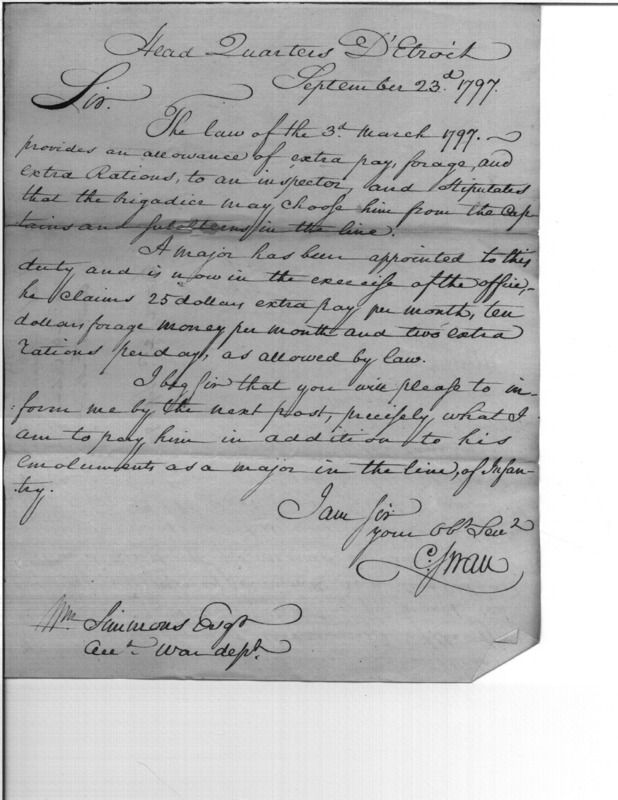 Head Quarters D'Etroit
September 23.d 1797.
Sir.
The law of the 3.d March 1797. ~
provides an allowance of extra pay, forage, and
extra Rations, to an inspector, and Stipulates
that the brigadier may choose him from the Cap-
tains and subalterns in the line.
A major has been appointed to this
duty and is now in the exercise of the office,-
he claims 25 dollars extra pay per month, ten
dollars forage money per month and two extra
rations per day, as allowed by law.
I beg Sir that you will please to in-
:form me by the next post, precisely what I
am to pay him in addition to his
emoluments as a major in the line, of Infan-
:try.
I am Sir
your Ob.t Ser.t
C. Swan
Wm Simmons Esqr
Acc.t War dep.t